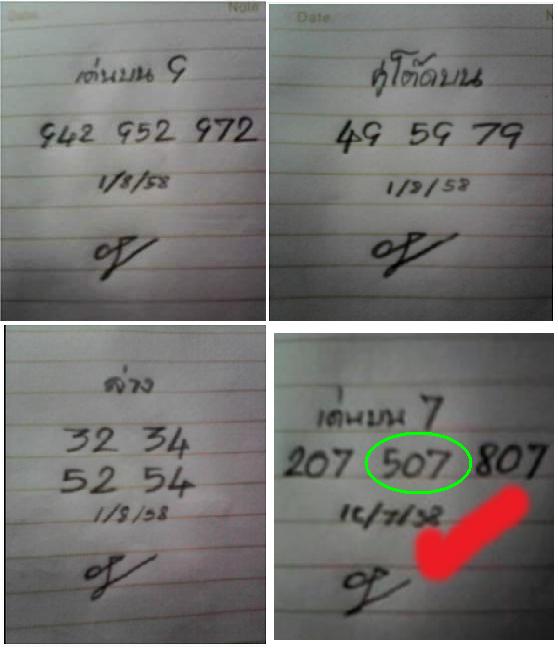 Date
Note
เด่นบน 9
942 952 972
1/8/58
Date
คู่โต๊ดบน
49 59 79
1/8/58
ล่าง
32 34
52 54
1/8/58
เด่นบน 7
207 507 807
16/7/58